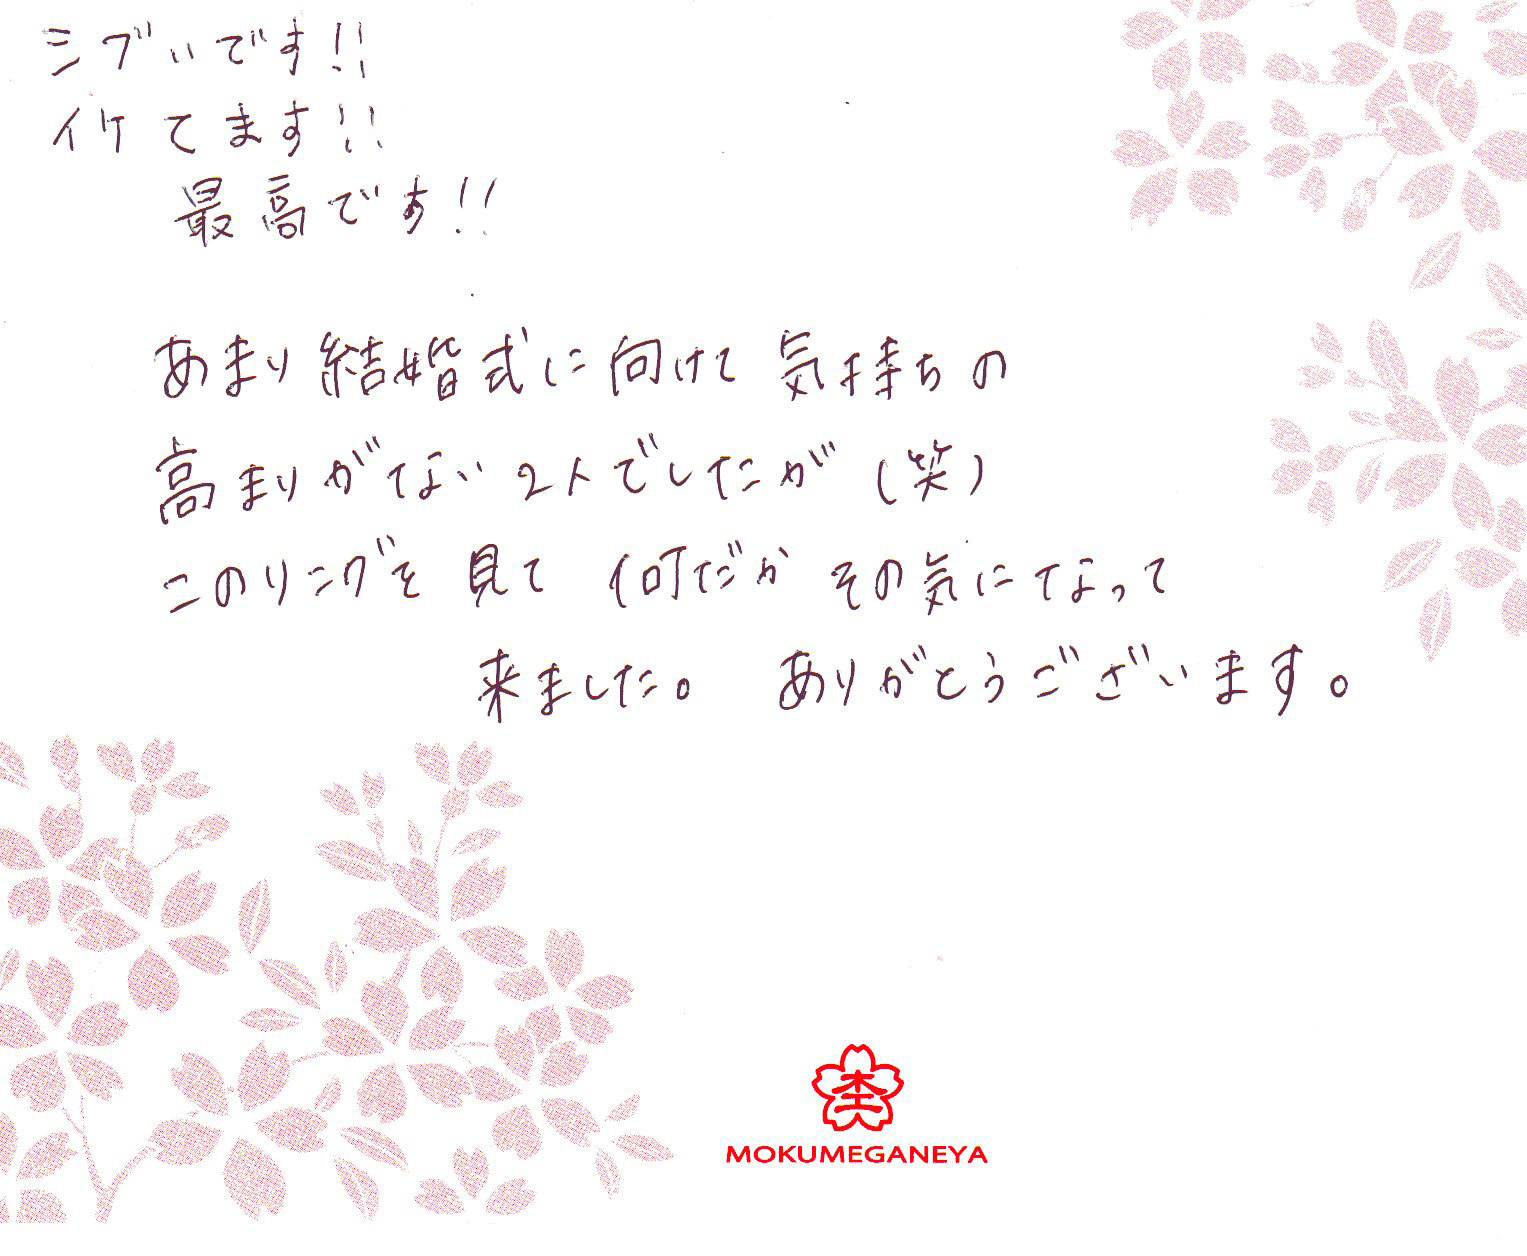 シブいです!!
イケてます!!
最高です!!
あまり結婚式に向けて気持ちの
高まりがない2人でしたが(笑)
このリングを見て何だかその気になって
来ました。ありがとうございます。
MOKUMEGANEYA